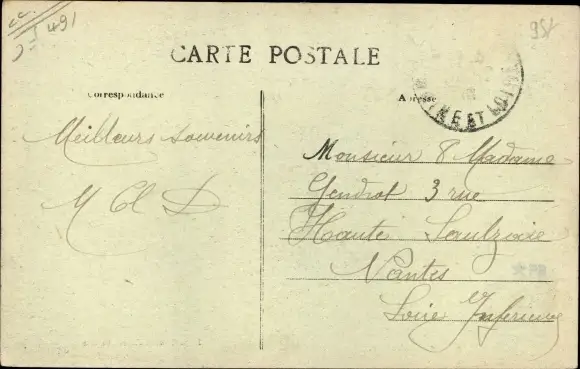 cc
491
95f
CARTE POSTALE
Correspondance
Adresse
NE ET LOIRE
Meilleurs souvenirs
M Cl D
Monsieur & Madame
Gendrot 3 rue
Haute
Nantes
Loire Inférieure